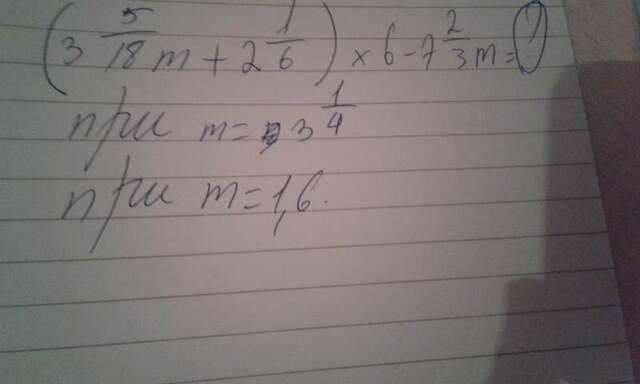 (3 5/18 m + 2 1/6) × 6 - 7 2/3 m = ?
при m = 3 1/4
при m = 1,6.